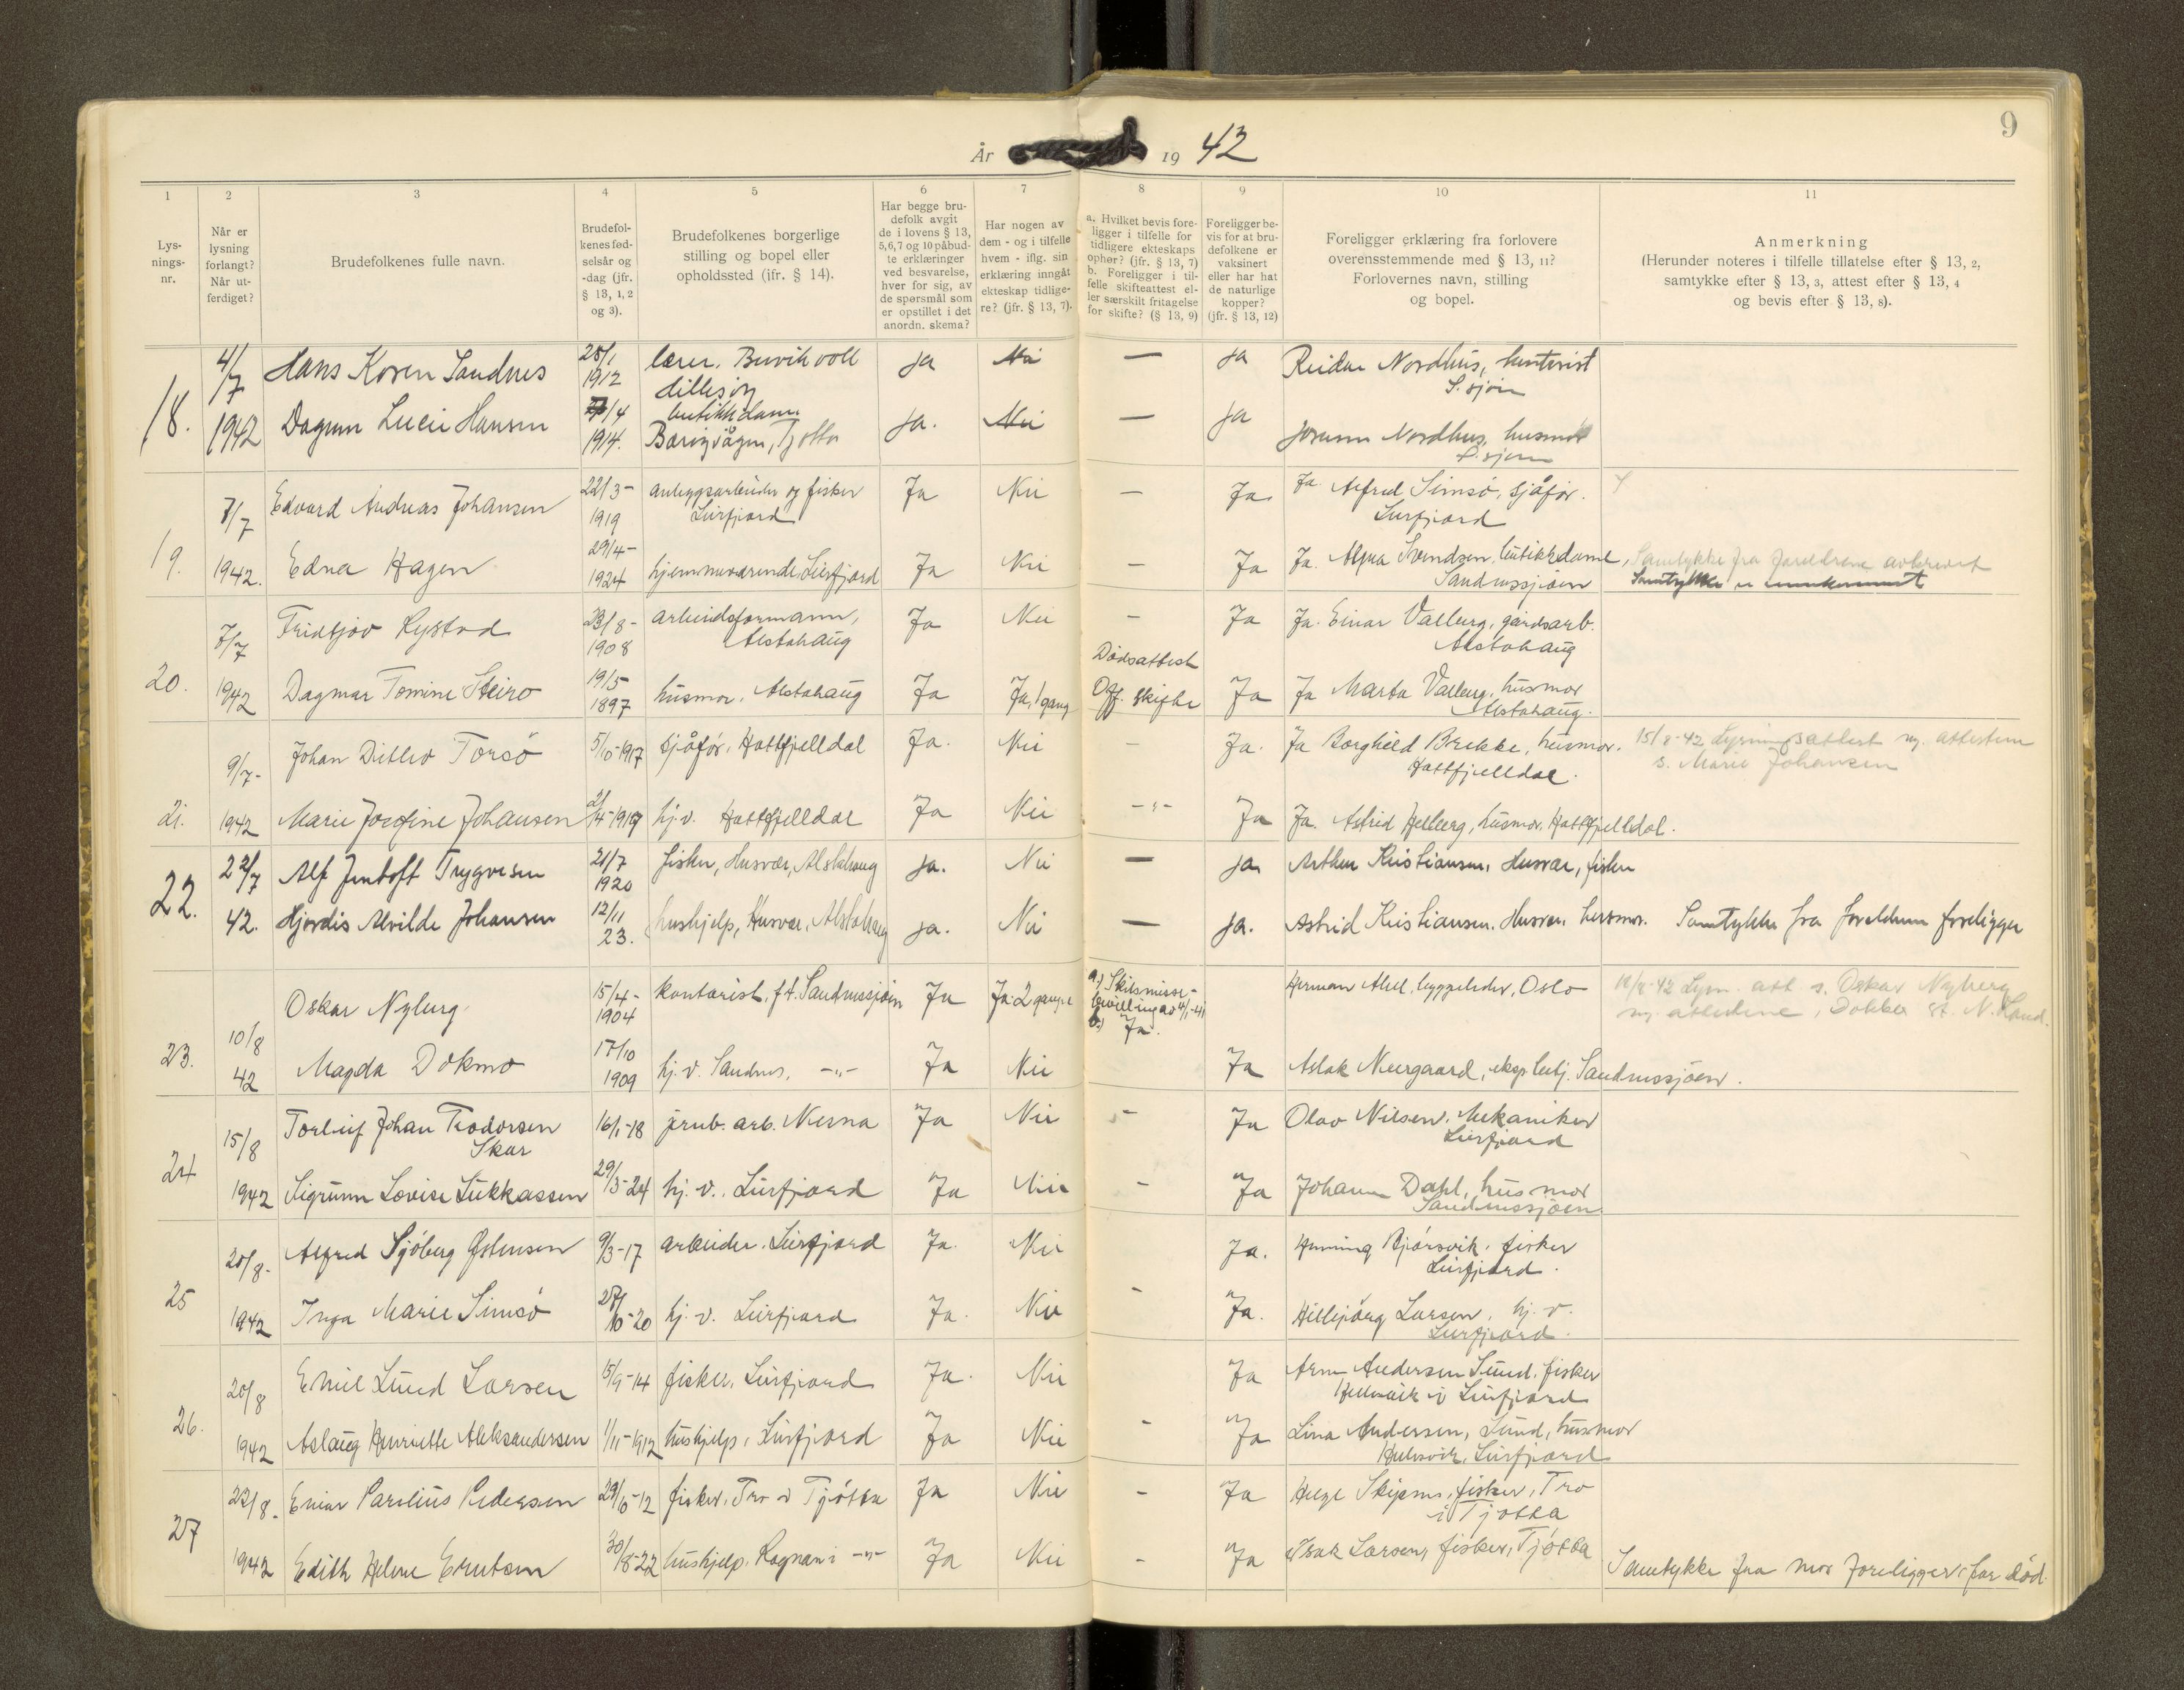 9
År 19 42
1 2 3 4 5 6 7 8 9 10 11
Lys-
nings-
nr.
Når er
lysning
forlangt?
Når ut-
ferdiget?
Brudefolkenes fulle navn.
Brudefol-
kenes fød-
selsår og
-dag (jfr.
§ 13, 1, 2
og 3).
Brudefolkenes borgerlige
stilling og bopel eller
opholdssted (jfr. § 14).
Har begge bru-
defolk avgit
de i lovens § 13,
5, 6, 7 og 10 påbud-
te erklæringer
ved besvarelse,
hver for sig, av
de spørsmål som
er opstillet i det
anordn. skema?
Har nogen av
dem - og i tilfelle
hvem - iflg. sin
erklæring inngåt
ekteskap tidlige-
re? (jfr. § 13, 7).
a. Hvilket bevis fore-
ligger i tilfelle for
tidligere ekteskaps
ophør? (jfr. § 13, 7)
b. Foreligger i til-
felle skifteattest el-
ler særskilt fritagelse
for skifte? (§ 13, 9)
Foreligger be-
vis for at bru-
defolkene er
vaksinert
eller har hat
de naturlige
kopper?
(jfr. § 13, 12)
Foreligger erklæring fra forlovere
overensstemmende med § 13, 11?
Forlovernes navn, stilling
og bopel.
Anmerkning
(Herunder noteres i tilfelle tillatelse efter § 13, 2,
samtykke efter § 13, 3, attest efter § 13, 4
og bevis efter § 13, 8).
18. 4/7 Hans Koren Sandnes 28/1 1912 lærer, ja Nei — ja Reidar Nordhus,
S.sjøen
1942 Dagrun Lucie Hansen /4 1914. butikkdame ja. Nei — ja Jorunn Nordhus, husmor
Tjøtta S.sjøen
19. 7/7 Edvard Andreas Johansen 22/3- 1919 anleggsarbeider og fisker Ja Nei — Ja. Ja. Alfred Simsø, sjåfør.
Leirfjord Leirfjord
1942. Edna Hagen 29/4- 1924 hjemmeværende, Leirfjord Ja Nei — Ja Ja. Svendsen, butikkdame, Samtykke fra foreldrene avkrevet
Sandnessjøen Samtykke er innkommet
20. 7/7 Fridtjov Rystad 23/8- 1908 arbeidsformann, Ja Nei — Ja Ja. Einar Valberg, gårdsarb.
Alstahaug Alstahaug
1942 Dagmar Tomine Steiro 19/5 1897 husmor, Alstahaug Ja Ja, 1 gang Dødsattest Off. skifte Ja Ja Marta Valberg, husmor
Alstahaug.
21. 9/7- Johan Ditlev Torsø 5/10-1917 sjåfør, Hattfjelldal Ja. Nei — Ja. Ja Borghild Brekke, husmor. 15/8-42 Lysningsattest ny. attestene
Hattfjelldal. s. Marie Johansen
1942 Marie Josefine Johansen 2/4-1919 hj.v. Hattfjelldal Ja Nei -"- Ja Ja. Astrid Helberg, husmor, Hattfjelldal.
22. 22/7 Alf Jentoft Trygvesen 21/7 1920 fisker, Husvær, Alstahaug ja. Nei — ja Arthur Kristiansen, Husvær, fisker
42. Hjørdis Alvilde Johansen 12/11 23. hushjelp, Husvær, Alstahaug ja. Nei — ja. Astrid Kristiansen, Husvær, husmor. Samtykke fra foreldrene foreligger
23. 10/8 Oskar Nyberg 15/4- 1904 kontorist, f.t. Sandnessjøen Ja Ja 2 ganger a) Skilsmisse-
bevilling av 4/1-41
b.) Ja. Herman Abel, byggeleder, Oslo 12/8-42 Lysn. att. s. Oskar Nyberg
ny. attestene, Dokka st. N. Land.
42 Magda Dokmo 17/10 1909 hj. v. Sandnes, -"- Ja Nei Ja Aslak Neergaard, eksp.betj. Sandnessjøen.
24 15/8 Torleif Johan Teodorsen 16/1-18 jernb. arb. Nesna Ja Nei - Ja Olav Nilsen, Mekaniker
Skar Leirfjord
1942 Sigrunn Lovise Lukkassen 29/3-24 hj. v. Leirfjord Ja Nei - Ja Johanne Dahl, husmor
Sandnessjøen
25 20/8- Alfred Sjøberg Østensen 9/3-17 arbeider, Leirfjord Ja. Nei Ja. Henning Bjørsvik, fisker
Leirfjord.
1942 Inga Marie Simsø 28/10-20 hj. v. Leirfjord Ja. Nei - Ja. Hillbjørg Larsen, hj. v.
Leirfjord.
26. 20/8 Emil Lund Larsen 15/9-14 fisker, Leirfjord Ja. Nei Ja Arne Andersen Sund, fisker
i Leirfjord
1942 Aslaug Henriette Aleksandersen 1/11-1912 hushjelp, Leirfjord Ja Nei - Ja Lina Andersen, Sund, husmor
Leirfjord
27 22/8. Einar Parelius Pedersen 29/6-12 fisker, Tro i Tjøtta Ja Nei - Ja Helge Skipsnes, fisker, Tro
i Tjøtta
1942 Edith Helene Evertsen 30/8-22 hushjelp, Rognan i -"- Ja Nei - Ja Isak Larsen, fisker, Tjøtta Samtykke fra mor foreligger, far død.